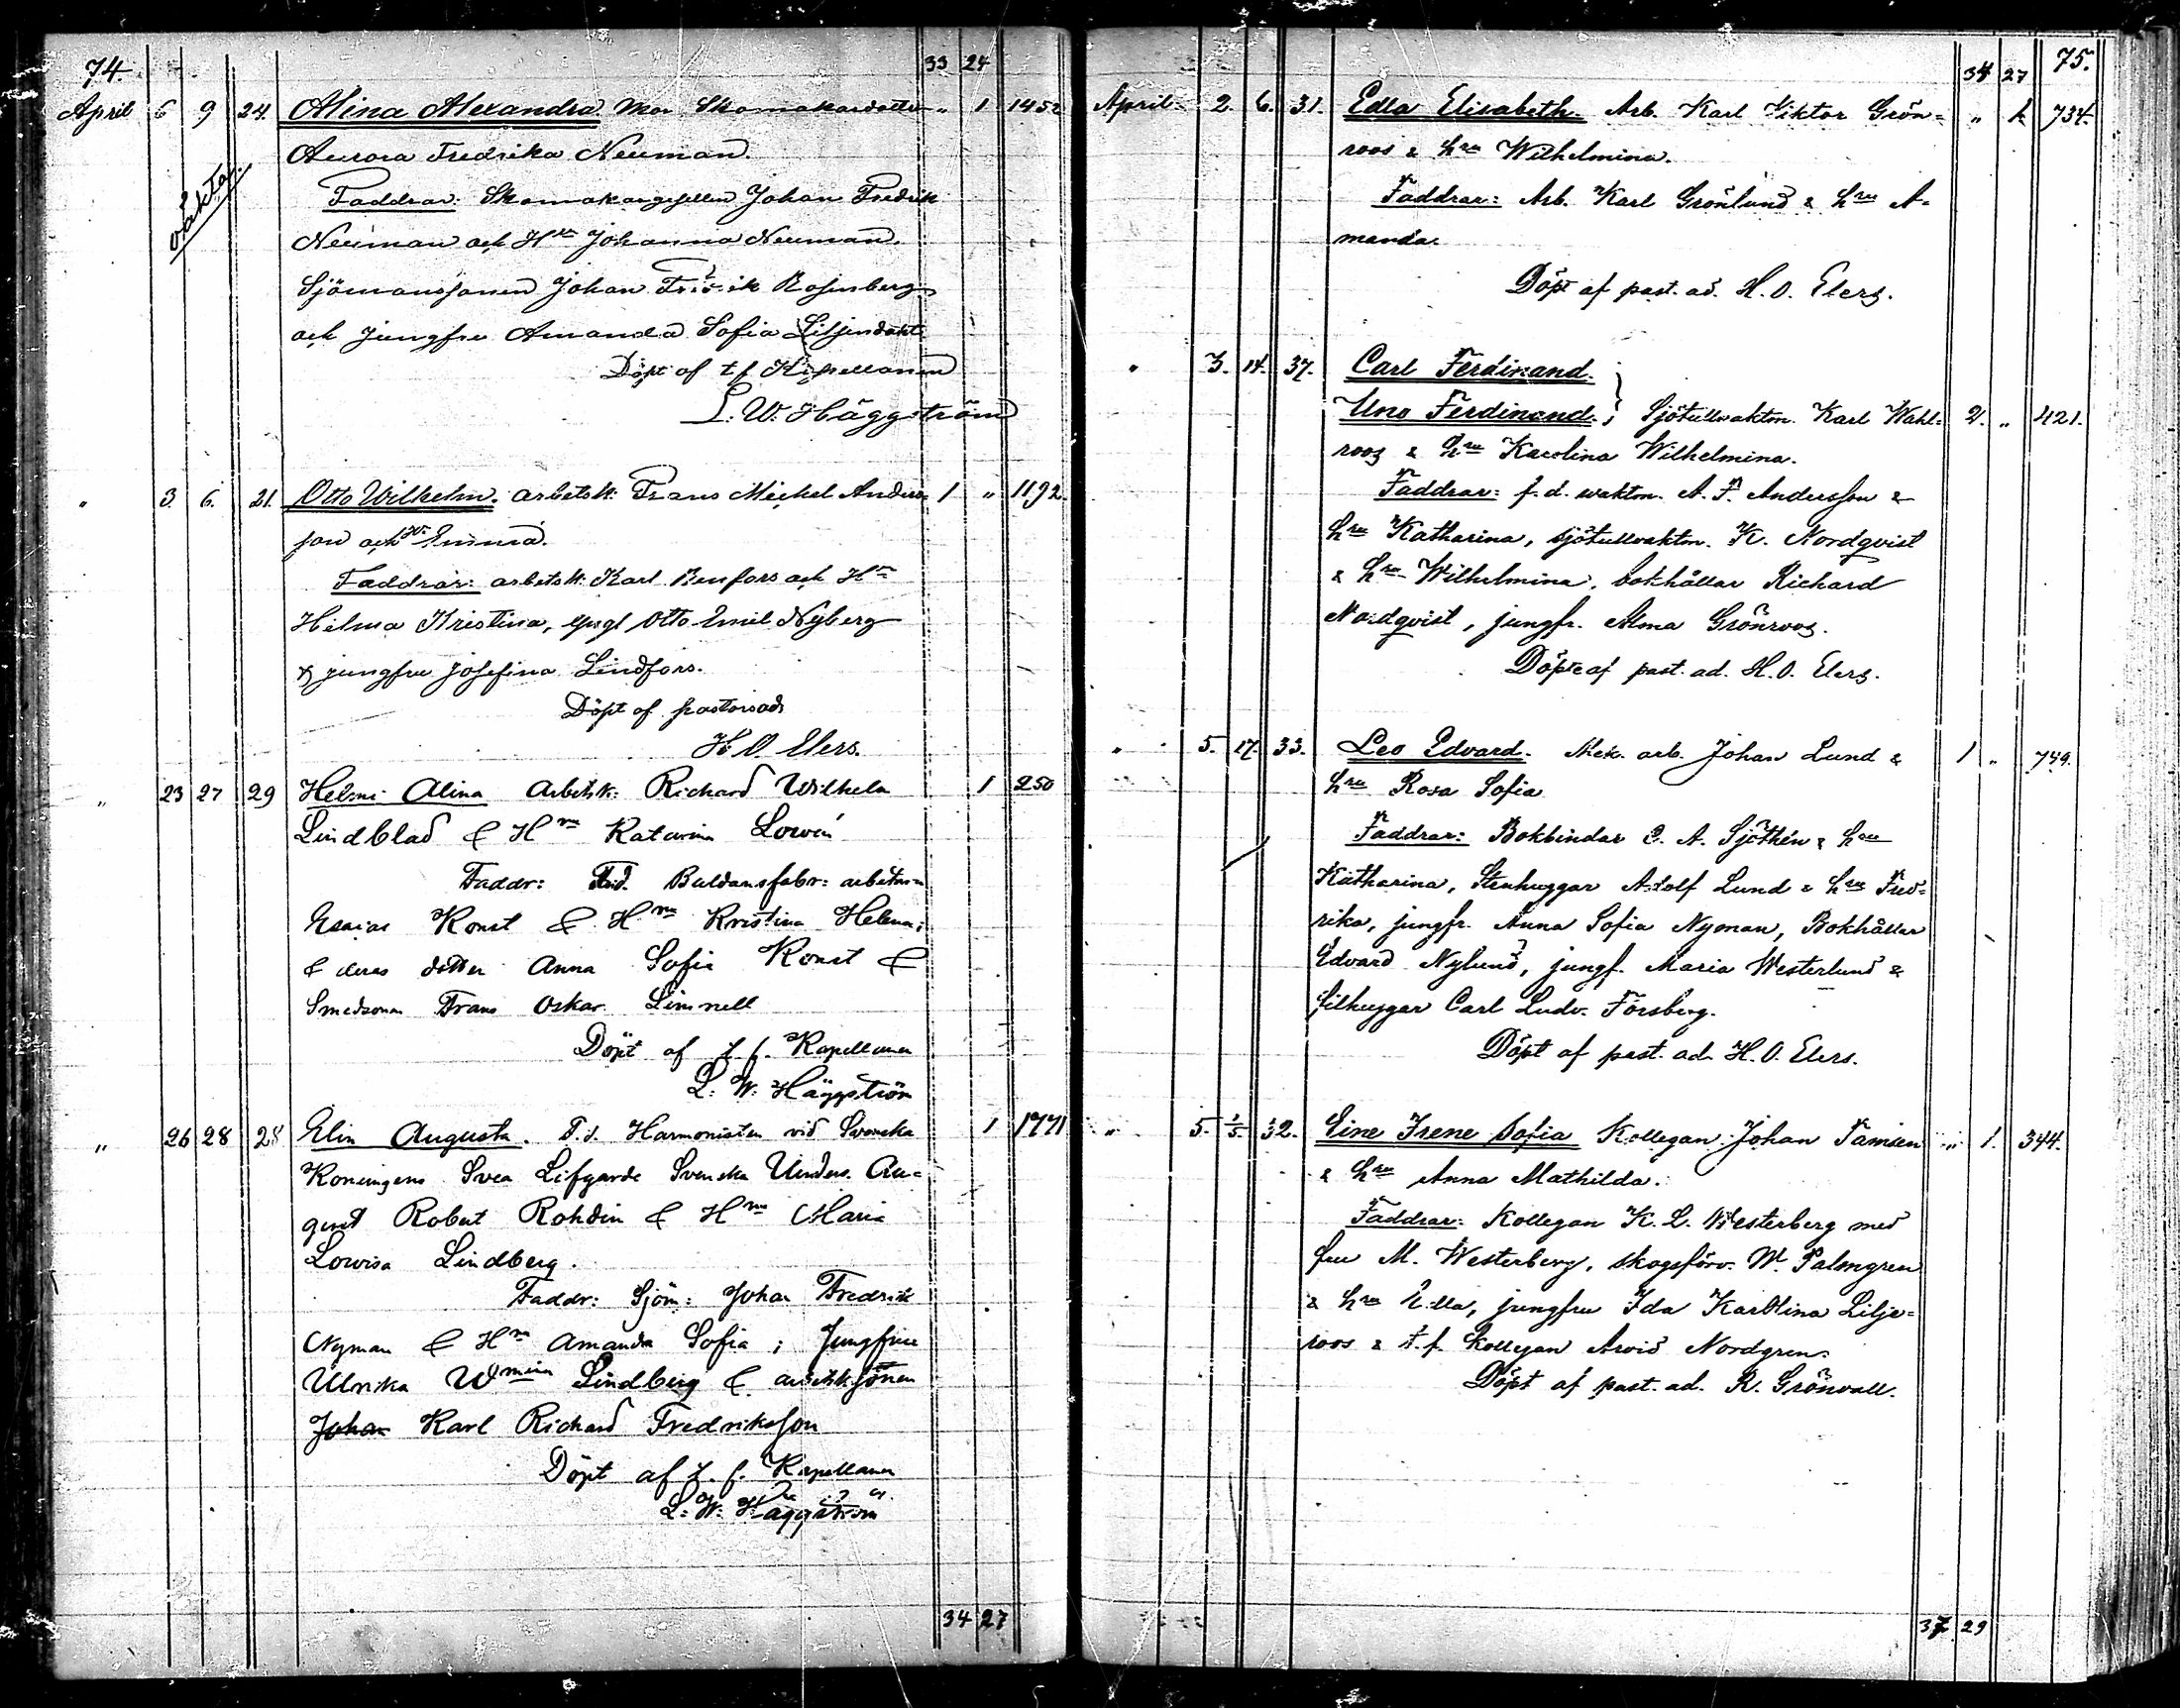 74. 33 24
April 6 9 24. Alina Alexandra. Mor Skomakardotter „ 1 1452
Aurora Fredrika Neuman.
oäkta.
Faddrar: Skomakaregesellen Johan Fredrik
Neuman och Hru Johanna Neuman.
Sjömanssonen Johan Fredrik Rosenberg
och jungfru Amanda Sofia Liljendahl
Döpt af t.f. Kapellanen
L. W. Häggström
„ 3. 6. 21. Otto Wilhelm. arbetsk: Frans Mickel Anders= 1 „ 1192.
son och Hu Emma.
Faddrar: arbetsk: Karl Renfors och Hru
Hilma Kristina, Otto Emil Nyberg
& jungfru Josefina Lindfors.
Döpt af pastorsadj
H O Elers.
„ 23 27 29 Helmi Alina Arbetsk: Richard Wilhelm 1 250
Lindblad & Hru Katarina Lovén
Faddr: arbetaren
Esaias Konst & Hru Kristina Helena;
& deras dotter Anna Sofia Konst &
Smedsonen Frans Oskar Limnell
Döpt af t. f. Kapellanen
L. W. Häggström
„ 26 28 28 Elin Augusta. F.d. Harmonisten vid Svenska 1 1771
Konungens Svea Lifgarde Svenska Unders. Au=
gust Robert Rohdin & Hru Maria
Lovisa Lindberg.
Faddr: Sjöm: Johan Fredrik
Nyman & Hru Amanda Sofia; Jungfru
Ulrika Wmina Lindberg & arbetsk.sonen
Johan Karl Richard Fredriksson
Döpt af t. f. Kapellanen
L: W: Häggström
34 27
34 27 75.
April 2. 6. 31. Edla Elisabeth. Arb. Karl Viktor Grön= „ 1. 734.
roos & hru Wilhelmina.
Faddrar: Arb. Karl Grönlund & hru A=
manda.
Döpt af past. ad. H. O. Elers.
„ 3. 14. 37. Carl Ferdinand.
Uno Ferdinand. Sjötullvaktm. Karl Wahl= 2. „ 421.
roos & hru Karolina Wilhelmina.
Faddrar: f. d. waktm. A. F. Andersson &
hru Katharina, sjötullvaktm. K. Nordqvist
& hru Wilhelmina, bokhållar Richard
Nordqvist, jungfr. Alma Grönroos.
Döpte af past. ad. H. O. Elers.
„ 5. 17. 33. Leo Edvard. Mek. arb. Johan Lund & 1 „ 749.
hru Rosa Sofia
Faddrar: Bokbindar C. A. Sjöthén & hru
Katharina, Stenhuggar Adolf Lund & hru Fred=
rika, jungfr. Anna Sofia Nyman, Bokhållar
Edvard Nylund, jungf. Maria Westerlund &
filhuggar Carl Ludv. Forsberg.
Döpt af past. ad. H. O. Elers.
„ 5. 1/5. 32. Eine Irene Sofia Kollegan Johan Tamlen „ 1. 344.
& hru Anna Mathilda.
Faddrar: Kollegan K. L. Westerberg med
fru M. Westerberg, skogsförv. W. Palmgren
& hru Edla, jungfru Ida Karolina Lilje=
roos & t. f. kollegan Arvid Nordgren.
Döpt af past. ad. R. Grönvall.
37 29